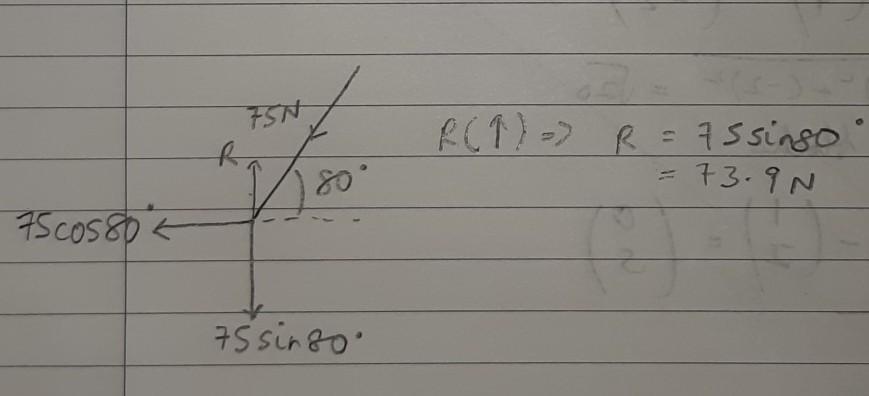 75N
R(↑) => R = 75sin80°
R
80°
= 73.9N
75cos80°
75sin80°